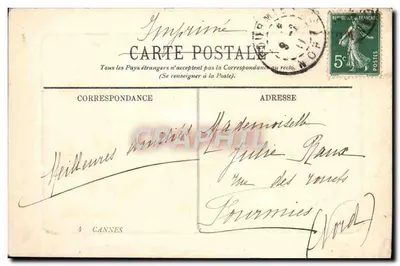 Imprimé
CARTE POSTALE
Tous les Pays étrangers n'acceptent pas la Correspondance au recto.
(Se renseigner à la Poste).
FOURMIES
NORD
5c
POSTES
CORRESPONDANCE
ADRESSE
Meilleures amitiés
Mademoiselle
Julie
rue des
Fourmies
(Nord)
4 CANNES